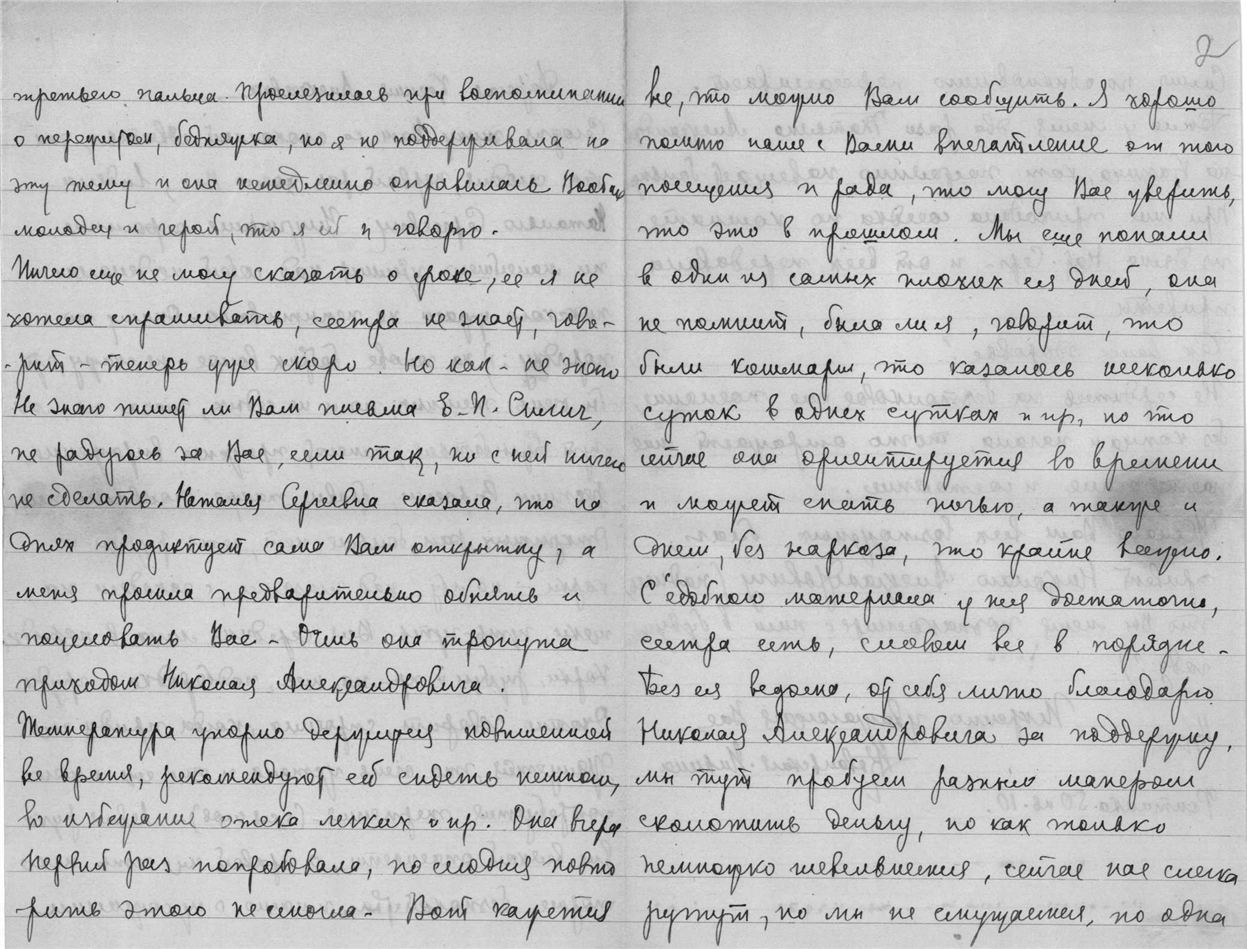 третьего пальца. Прослезилась при воспоминании
о пережитом, бедняжка, но я не поддерживала на
эту тему и она немедленно оправилась Вообще
молодец и герой, что я ей и говорю.
Ничего еще не могу сказать о сроке, ее я не
хотела спрашивать, сестра не знает, гово-
-рит - теперь уже скоро. Но как - не знаю
Не знаю пишет ли Вам письма Е. П.
не радуюсь за Вас, если так, но с ней ничего
не сделать. Наталья Сергеевна сказала, что на
днях продиктует сама Вам открытку, а
меня просила предварительно обнять и
поцеловать Вас - Очень она тронута
приходом Николая Александровича.
Температура упорно держится повышенной
все время, рекомендуют ей сидеть немного,
во избежание отека легких и пр. Она вчера
первый раз попробовала, но сегодня повто
рить этого не смогла - Вот кажется
2
все, что можно Вам сообщить. Я хорошо
помню наше с Вами впечатление от того
посещения и рада, что могу Вас уверить,
что это в прошлом. Мы еще попали
в один из самых плохих ея дней, она
не помнит, была ли я, говорит, что
были кошмары, что казалось несколько
суток в одних сутках и пр, но что
сейчас она ориентируется во времени
и может спать ночью, а также и
днем, без наркоза, что крайне важно.
С'едобного материала у нея достаточно,
сестра есть, словом все в порядке.
Без ея ведома, от себя лично благодарю
Николая Александровича за поддержку,
мы тут пробуем разным манером
сколотить деньгу, но как только
немножко шевельнемся, сейчас нас слегка
жужут, но мы не смущаемся, но одна